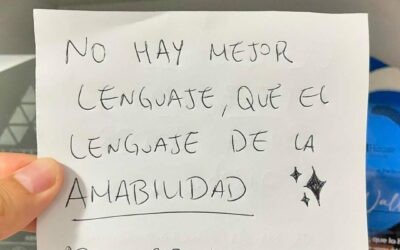 NO HAY MEJOR
LENGUAJE, QUE EL
LENGUAJE DE LA
AMABILIDAD